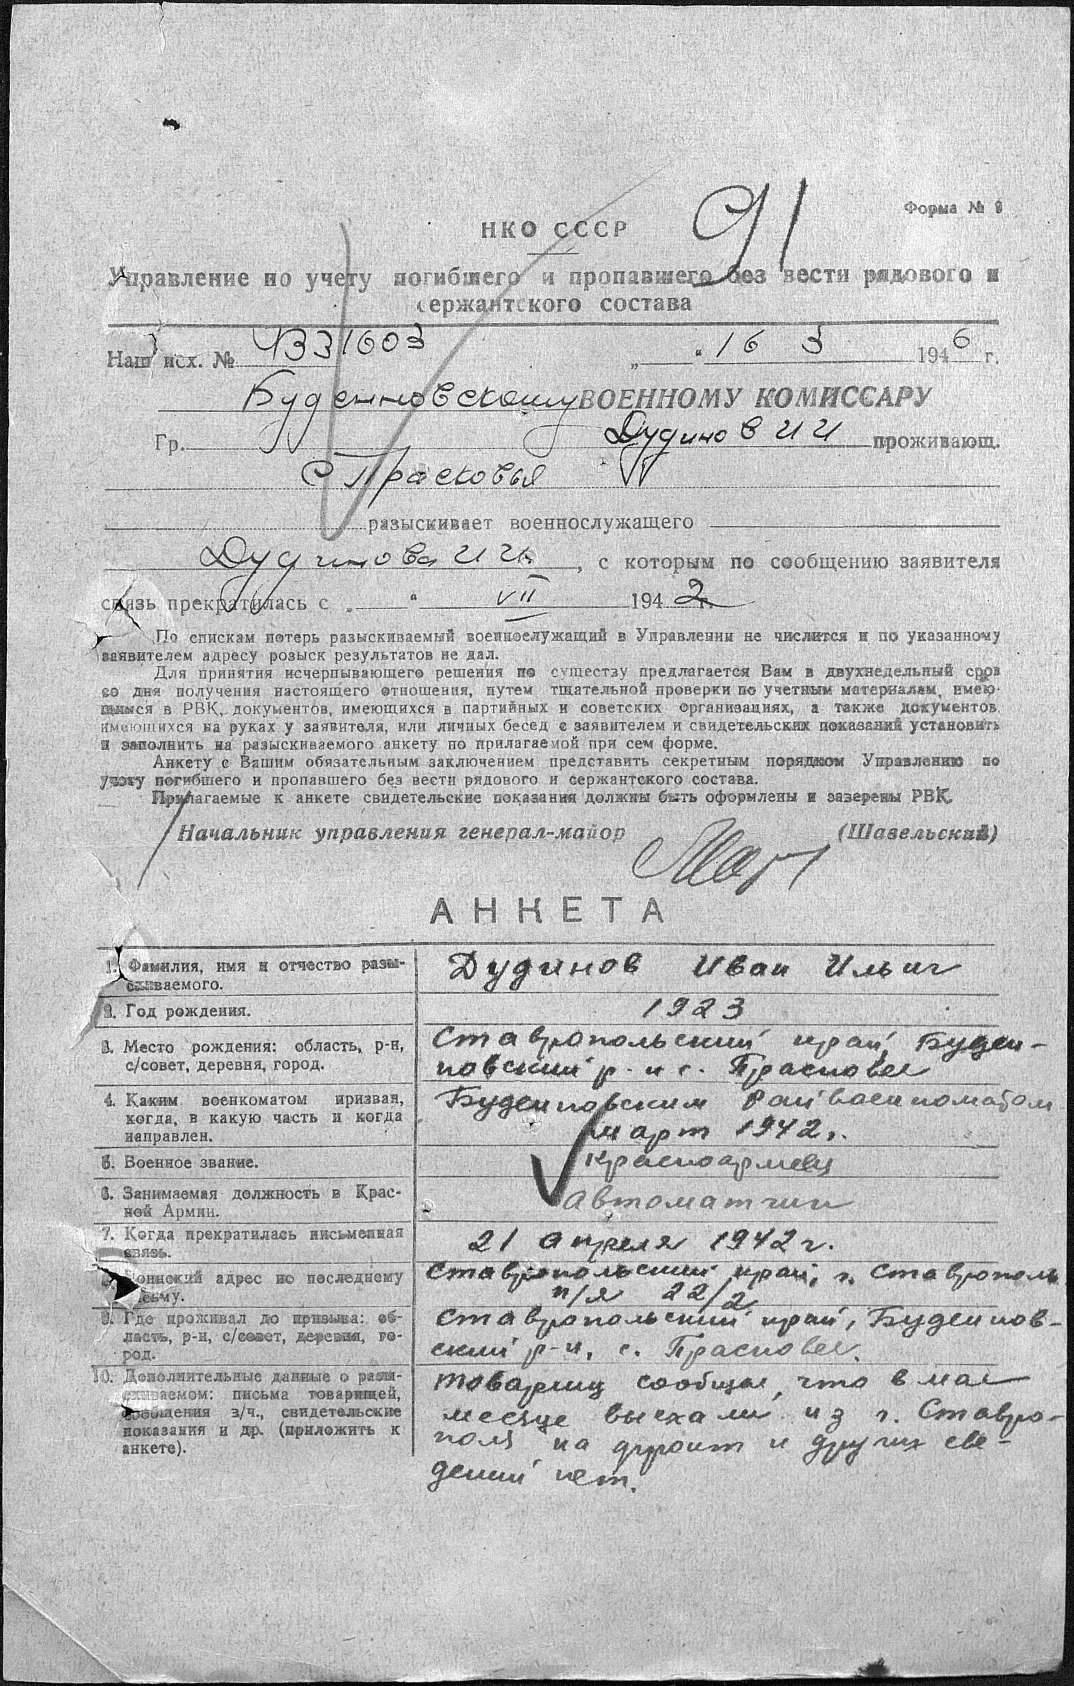 91
Форма № 9
НКО СССР
Управление по учету погибшего и пропавшего без вести рядового и
сержантского состава
Наш исх. № 31603 „ " 16 3 1946 г.
Буденновскому ВОЕННОМУ КОМИССАРУ
Гр. Дудинов И И проживающ.
с Прасковья
разыскивает военнослужащего
Дудинова И Ил , с которым по сообщению заявителя
связь прекратилась с „ " VII 1942 г.
По спискам потерь разыскиваемый военнослужащий в Управлении не числится и по указанному
заявителем адресу розыск результатов не дал.
Для принятия исчерпывающего решения по существу предлагается Вам в двухнедельный срок
со дня получения настоящего отношения, путем тщательной проверки по учетным материалам, имею-
щимся в РВК, документов, имеющихся в партийных и советских организациях, а также документов,
имеющихся на руках у заявителя, или личных бесед с заявителем и свидетельских показаний установить
и заполнить на разыскиваемого анкету по прилагаемой при сем форме.
Анкету с Вашим обязательным заключением представить секретным порядком Управлению по
учету погибшего и пропавшего без вести рядового и сержантского состава.
Прилагаемые к анкете свидетельские показания должны быть оформлены и заверены РВК.
Начальник управления генерал-майор (Шавельский)
АНКЕТА
1. Фамилия, имя и отчество разы-
скиваемого.
Дудинов Иван Ильич
2. Год рождения.
1923
3. Место рождения: область, р-н,
с/совет, деревня, город.
Ставропольский край, Буден-
новский р-н с. Прасковея
4. Каким военкоматом призван,
когда, в какую часть и когда
направлен.
Буденновским Райвоенкоматом
март 1942г.
5. Военное звание.
красноармеец
6. Занимаемая должность в Крас-
ной Армии.
автоматчик
7. Когда прекратилась письменная
связь.
21 апреля 1942 г.
8. Воинский адрес по последнему
письму.
Ставропольский край, г. Ставрополь
п/я 22/2
9. Где проживал до призыва: об-
ласть, р-н, с/совет, деревня, го-
род.
Ставропольский край, Буденнов-
ский р-н, с. Прасковея.
10. Дополнительные данные о разы-
скиваемом: письма товарищей,
сообщения в/ч., свидетельские
показания и др. (приложить к
анкете).
товарищ сообщал, что в мае
месяце выехали из г. Ставро-
поля на фронт и других све-
дений нет.